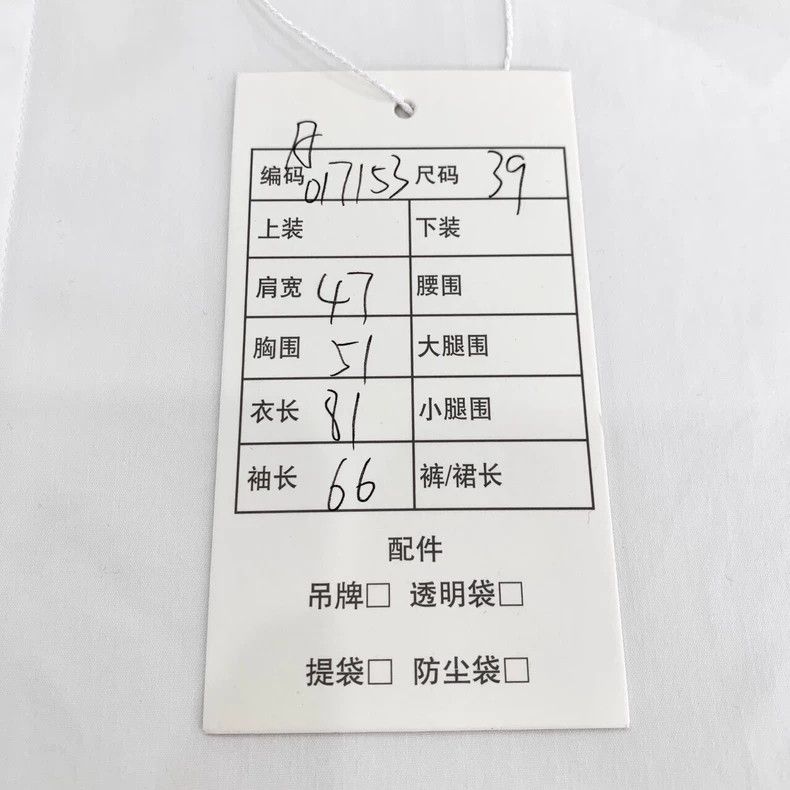 编码 017153 尺码 39
上装 下装
肩宽 47 腰围
胸围 51 大腿围
衣长 81 小腿围
袖长 66 裤/裙长
配件
吊牌□ 透明袋□
提袋□ 防尘袋□